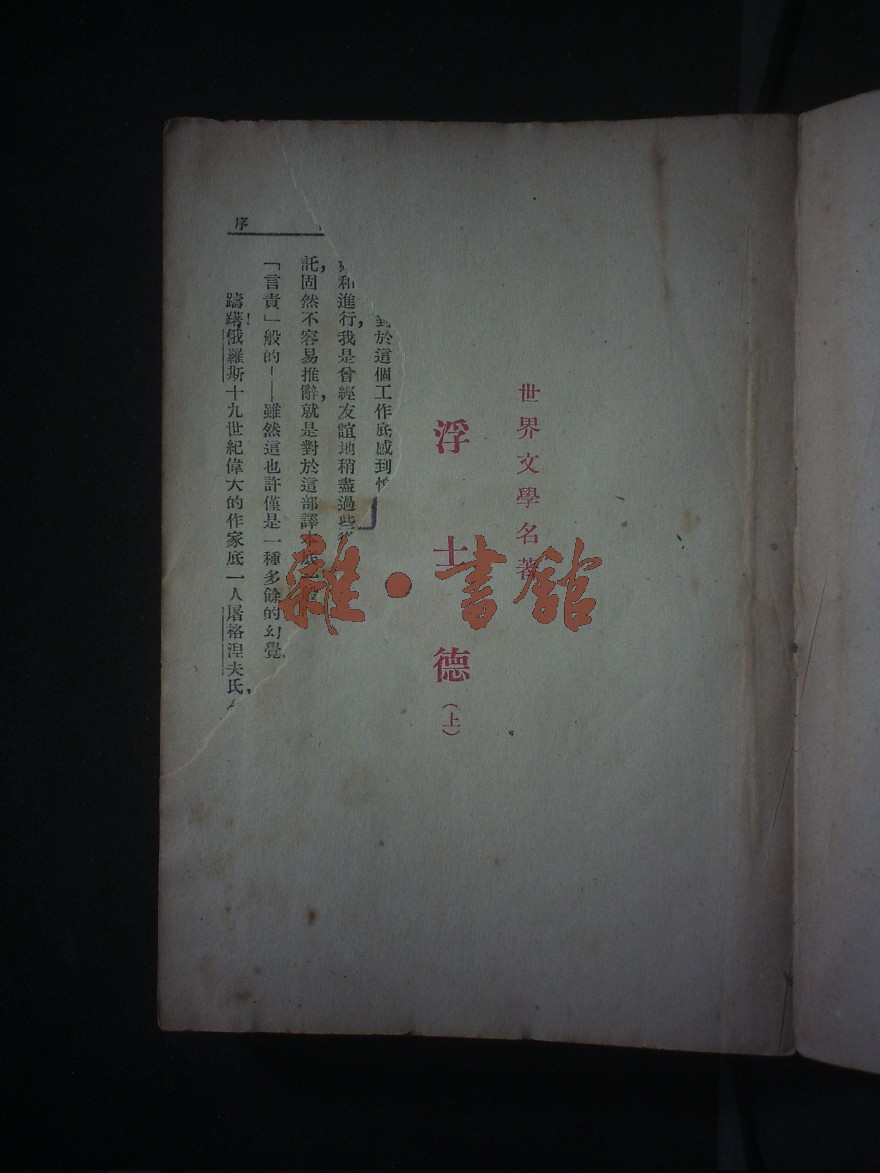 世界文學名著
浮士德
（上）
雜・書館
序
對於這個工作底感到
和進行，我是曾經友誼地稍盡過些
託，固然不容易推辭，就是對於這部譯
「言責」般的！——雖然這也許僅是一種多餘的幻覺
躊躇！俄羅斯十九世紀偉大的作家底一人屠格涅夫氏，